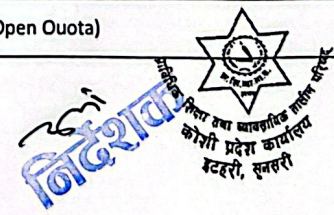 Open Quota)
प्राविधिक शिक्षा तथा व्यावसायिक तालीम परिषद्
कोशी प्रदेश कार्यालय
इटहरी, सुनसरी
निर्देशक